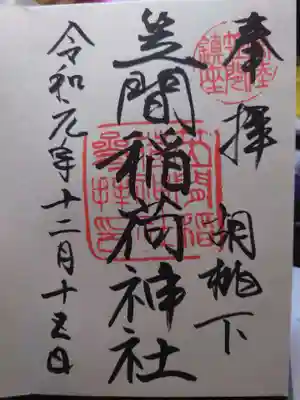 奉拝
胡桃下
笠間稲荷神社
令和元年十二月十五日